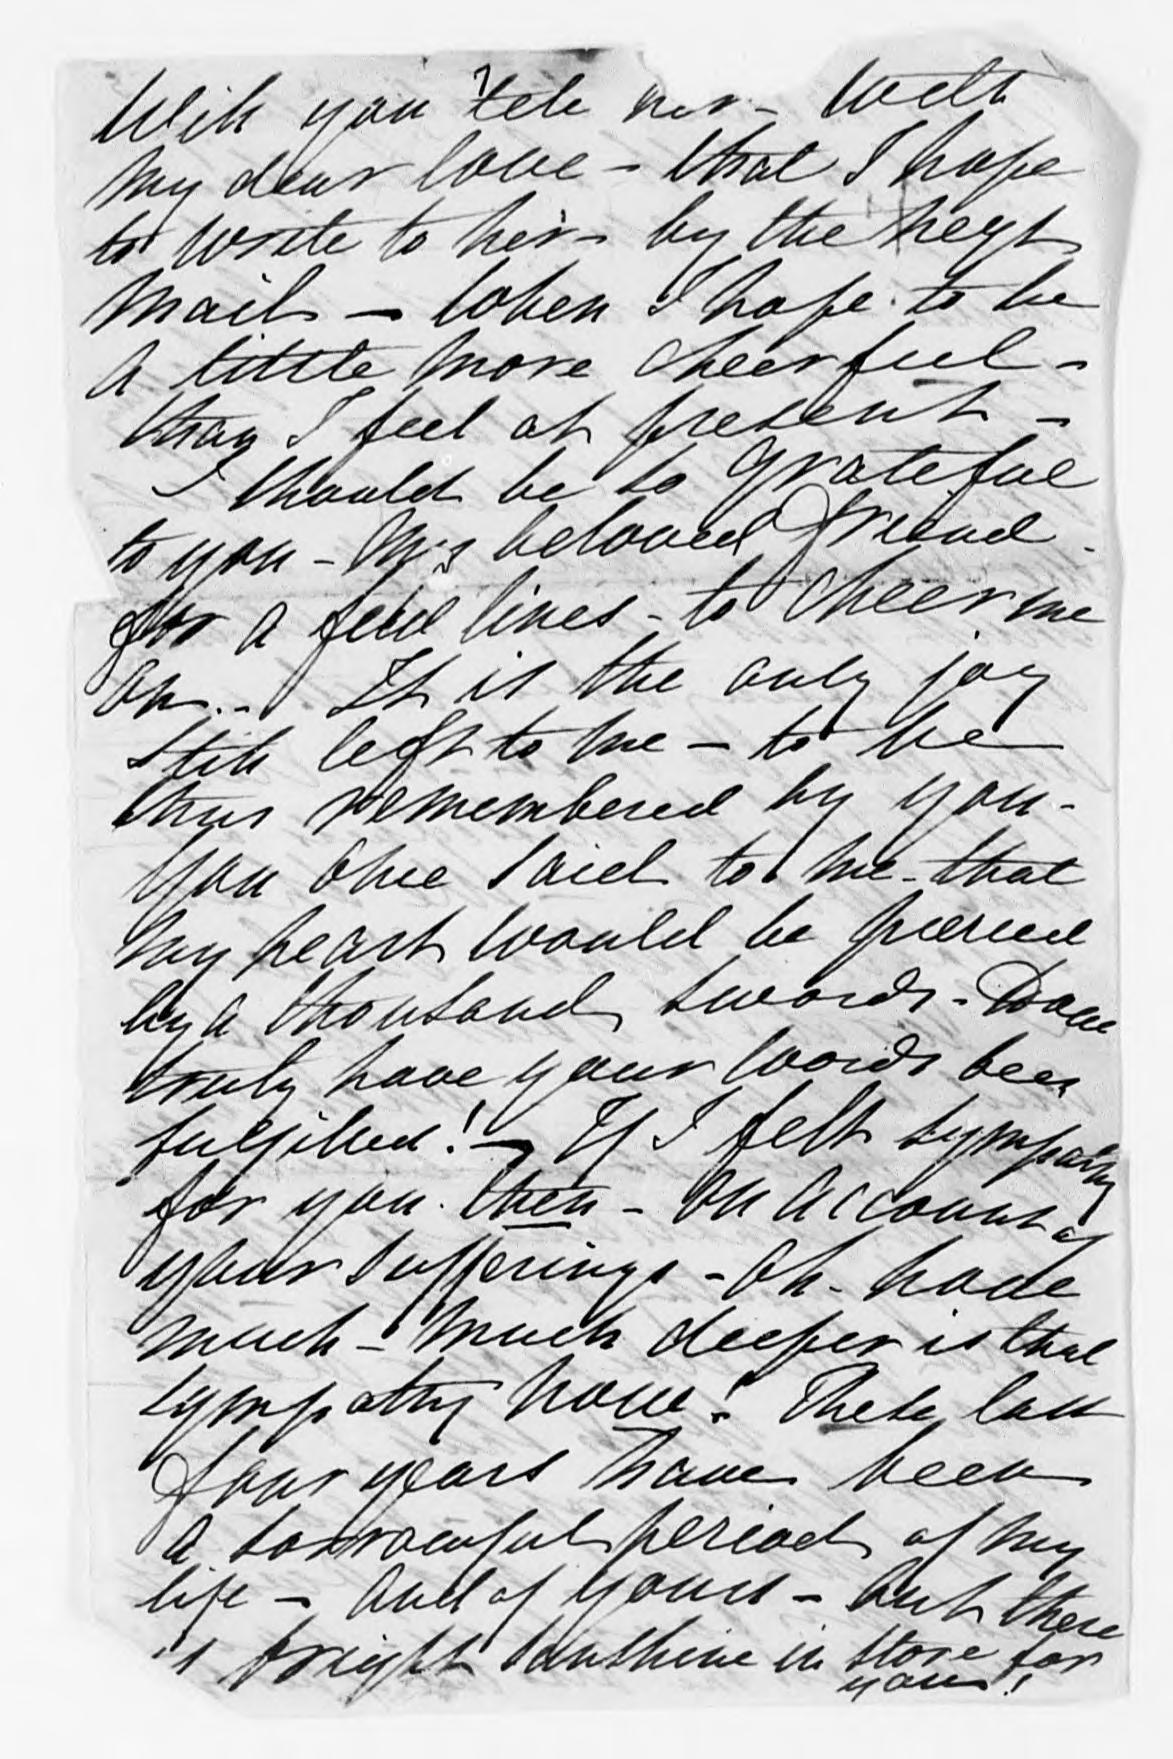 Will you tell her - with
my dear love - that I hope
to write to her - by the next
mail - when I hope to be
a little more cheerful -
than I feel at present -
I should be so grateful
to you - my beloved friend -
for a few lines - to cheer me
on. - It is the only joy
still left to me - to be
thus remembered by you -
You once said to me - that
my heart would be pierced
by a thousand swords -
truly have your words been
fulfilled! - If I felt sympathy
for you then - on account of
your sufferings - oh - how
much - much deeper is that
sympathy now! These last
four years have been
a sorrowful period of my
life - and of yours - but there
is bright sunshine in store for
you!